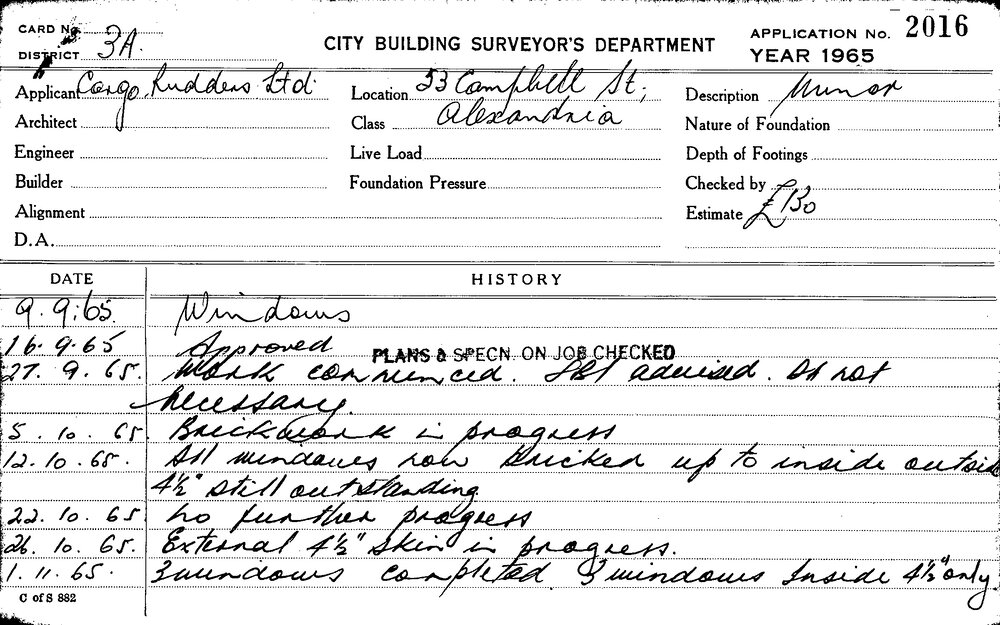 CARD No.
DISTRICT 3A.
CITY BUILDING SURVEYOR'S DEPARTMENT
APPLICATION No. 2016
YEAR 1965
Applicant Cargo Rudders Ltd.
Location 53 Campbell St;
Alexandria
Description Minor
Architect
Class
Nature of Foundation
Engineer
Live Load
Depth of Footings
Builder
Foundation Pressure
Checked by
Alignment
Estimate £130
D.A.
DATE HISTORY
9. 9. 65. Windows
16. 9. 65 Approved PLANS & SPECN. ON JOB CHECKED
27. 9. 65. Work commenced. advised. not
necessary.
5. 10. 65. Brickwork in progress
12. 10. 65. All windows now bricked up to inside outside
4½" still outstanding
22. 10. 65 no further progress
26. 10. 65. External 4½" skin in progress.
1. 11. 65. 3 windows completed 3 windows Inside 4½" only.
C of S 882